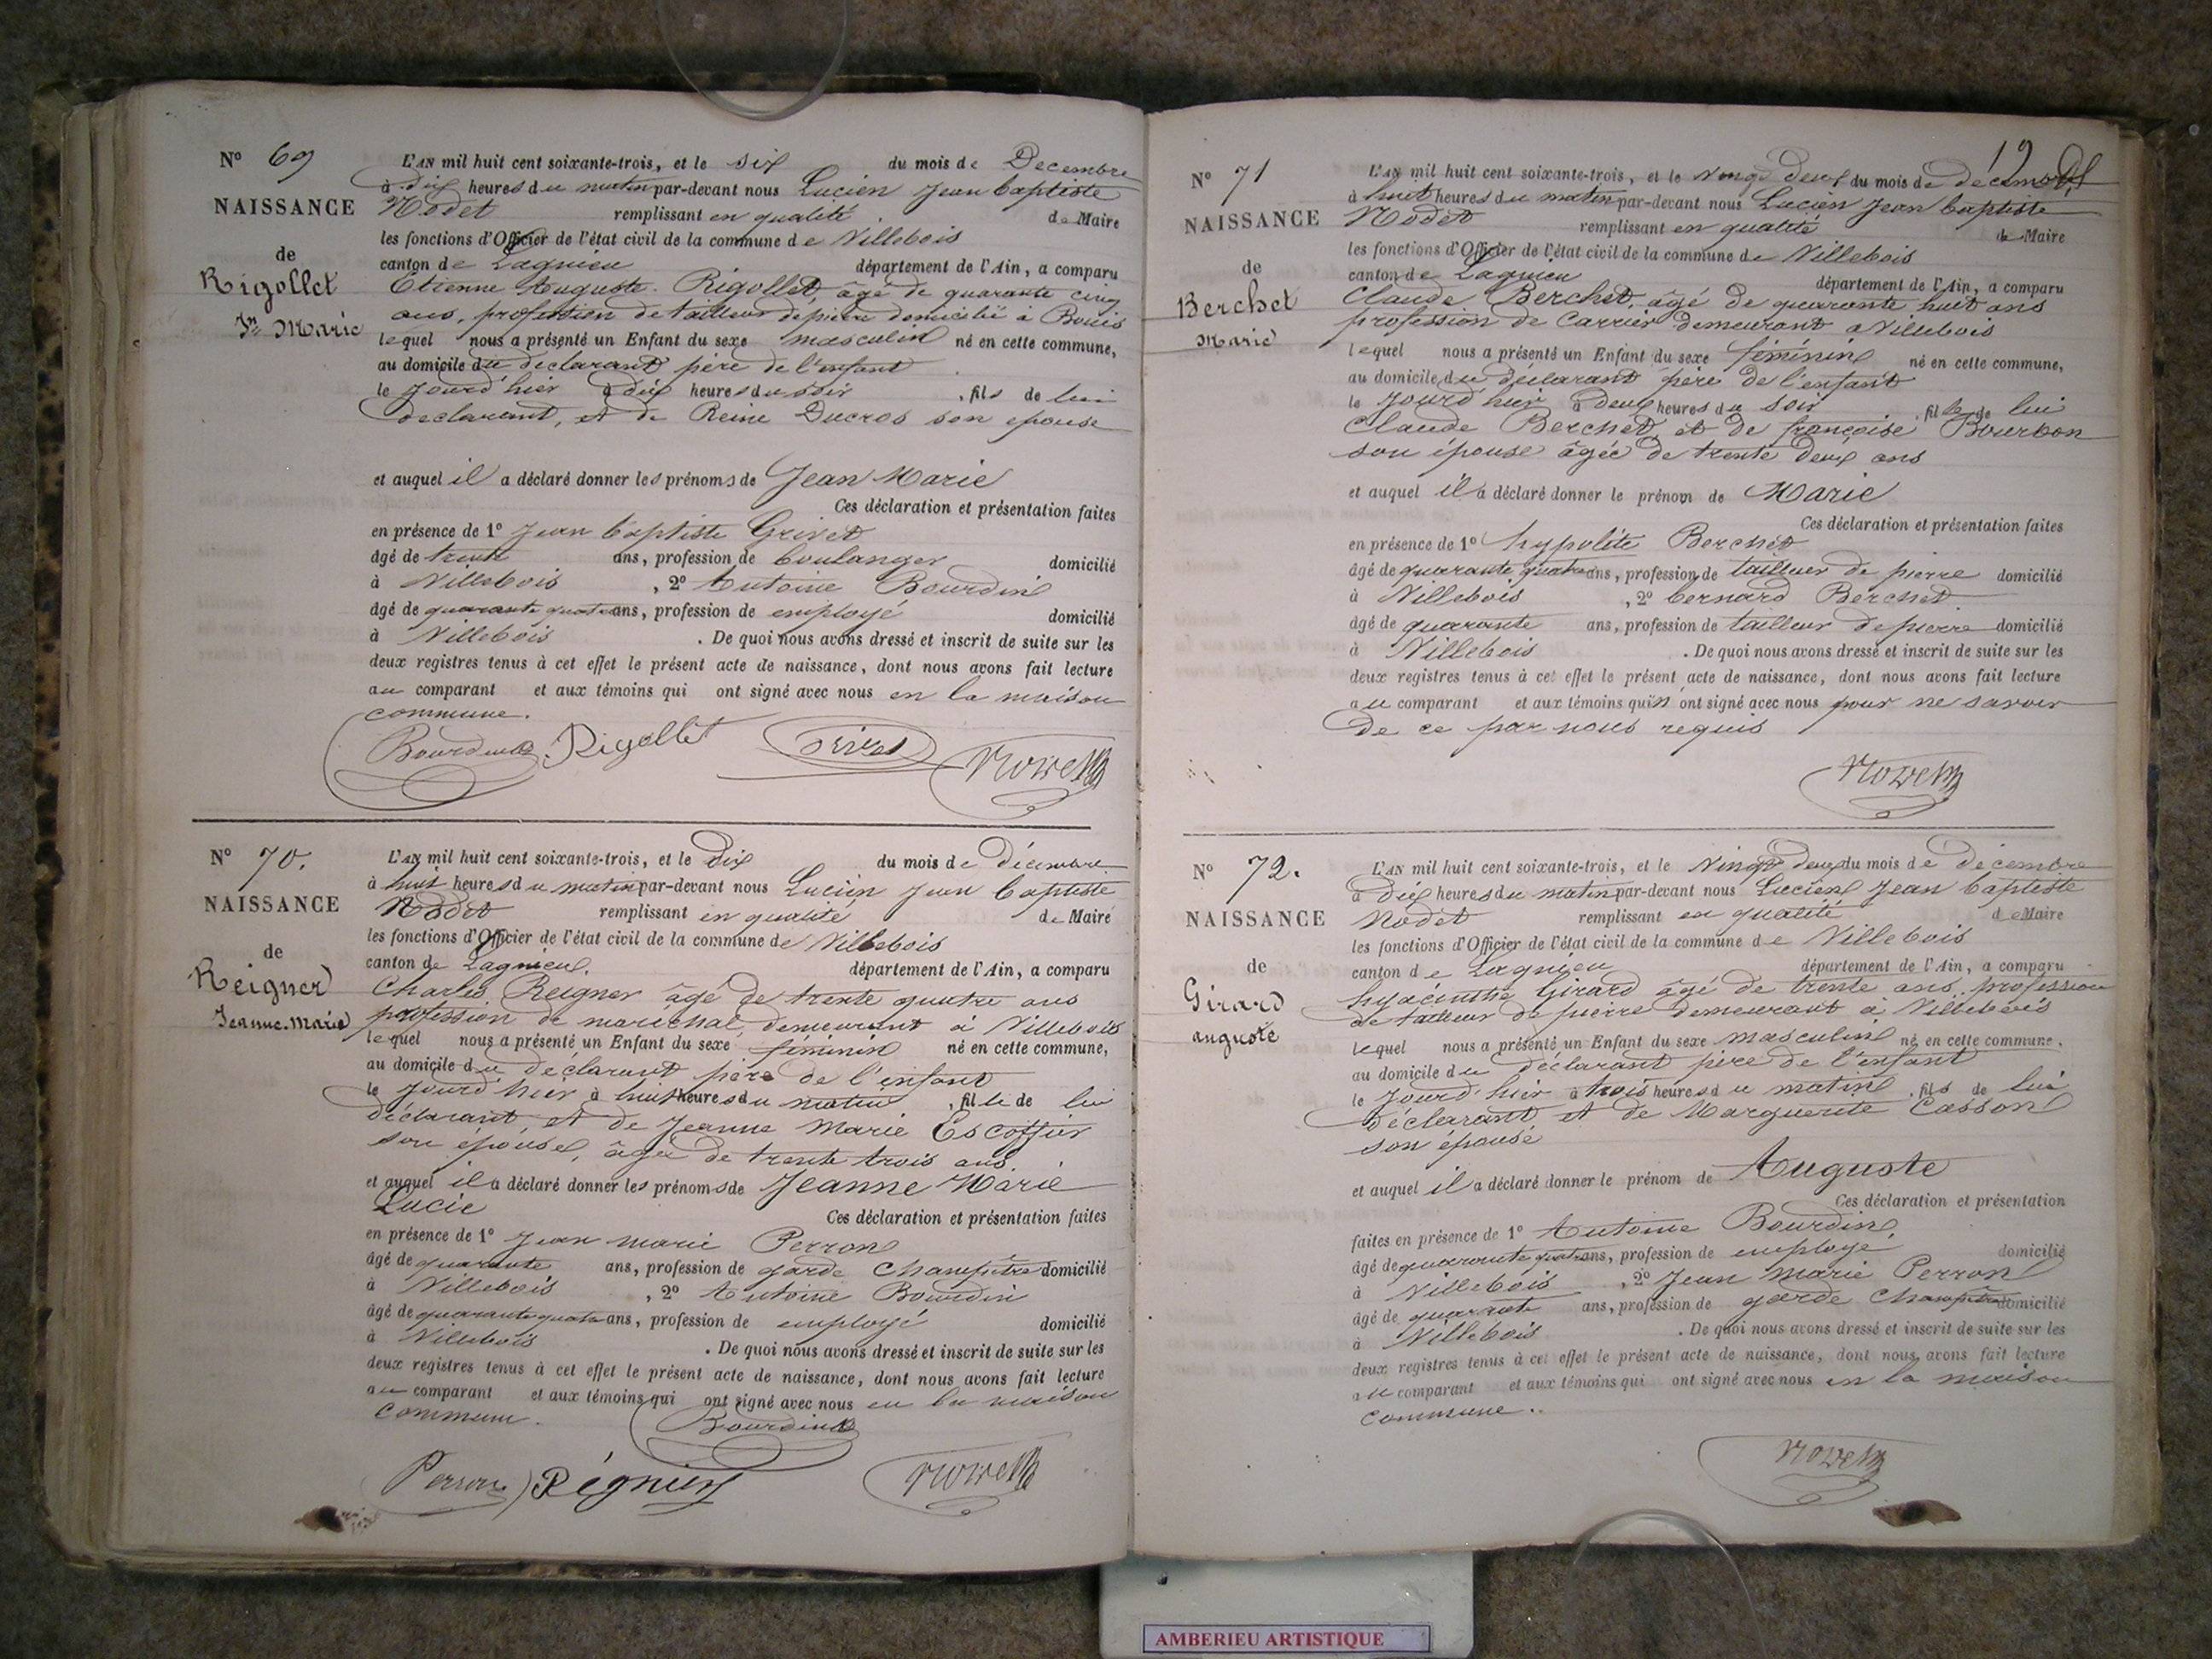 N° 69
NAISSANCE
de
Rigollet
Jn Marie
L'AN mil huit cent soixante-trois, et le six du mois de Decembre
à dix heures du matin par-devant nous Lucien Jean baptiste
Nodet remplissant en qualité de Maire
les fonctions d'Officier de l'état civil de la commune de Villebois
canton de Lagnieu département de l'Ain, a comparu
Etienne Auguste Rigollet, âgé de quarante cinq
ans, profession de tailleur de pierre domicilié à Bouis
lequel nous a présenté un Enfant du sexe masculin né en cette commune,
au domicile du déclarant père de l'enfant
le jourd'hier à dix heures du soir, fils de lui
declarant, et de Reine Ducros son epouse
et auquel il a déclaré donner les prénoms de Jean Marie
Ces déclaration et présentation faites
en présence de 1° Jean baptiste Grivet
âgé de trente ans, profession de boulanger domicilié
à Villebois, 2° Antoine Bourdin
âgé de quarante quatre ans, profession de employé domicilié
à Villebois. De quoi nous avons dressé et inscrit de suite sur les
deux registres tenus à cet effet le présent acte de naissance, dont nous avons fait lecture
au comparant et aux témoins qui ont signé avec nous en la maison
commune.
Bourdin Rigollet Grivet
N° 70.
NAISSANCE
de
Reigner
Jeanne-Marie
L'AN mil huit cent soixante-trois, et le dix du mois de décembre
à huit heures du matin par-devant nous Lucien Jean baptiste
Nodet remplissant en qualité de Maire
les fonctions d'Officier de l'état civil de la commune de Villebois
canton de Lagnieu. département de l'Ain, a comparu
Charles Reigner âgé de trente quatre ans
profession de maréchal, demeurant à Villebois
lequel nous a présenté un Enfant du sexe féminin né en cette commune,
au domicile du déclarant père de l'enfant
le jourd'hier à huit heures du matin, fille de lui
déclarant, et de Jeanne Marie Escoffier
son épouse, âgée de trente trois ans.
et auquel il a déclaré donner les prénoms de Jeanne Marie
Lucie Ces déclaration et présentation faites
en présence de 1° Jean marie Perron
âgé de quarante ans, profession de garde Champêtre domicilié
à Villebois, 2° Antoine Bourdin
âgé de quarante quatre ans, profession de employé domicilié
à Villebois. De quoi nous avons dressé et inscrit de suite sur les
deux registres tenus à cet effet le présent acte de naissance, dont nous avons fait lecture
au comparant et aux témoins qui ont signé avec nous en la maison
commune.
Bourdin
Perron Régnier
19
N° 71
NAISSANCE
de
Berchet
Marie
L'AN mil huit cent soixante-trois, et le vingt deux du mois de décembre
à huit heures du matin par-devant nous Lucien Jean baptiste
Nodet remplissant en qualité de Maire
les fonctions d'Officier de l'état civil de la commune de Villebois
canton de Lagnieu département de l'Ain, a comparu
Claude Berchet, âgé de quarante huit ans
profession de Carrier demeurant à Villebois
lequel nous a présenté un Enfant du sexe féminin né en cette commune,
au domicile du déclarant père de l'enfant
le jourd'hier à deux heures du soir, fille de lui
Claude Berchet, et de françoise Bourbon
son épouse âgée de trente deux ans
et auquel il a déclaré donner le prénom de Marie
Ces déclaration et présentation faites
en présence de 1° hypolite Berchet
âgé de quarante quatre ans, profession de tailleur de pierre domicilié
à Villebois, 2° bernard Berchet
âgé de quarante ans, profession de tailleur de pierre domicilié
à Villebois. De quoi nous avons dressé et inscrit de suite sur les
deux registres tenus à cet effet le présent acte de naissance, dont nous avons fait lecture
au comparant et aux témoins qui n'ont signé avec nous pour ne savoir
de ce par nous requis
N° 72.
NAISSANCE
de
Girard
auguste
L'AN mil huit cent soixante-trois, et le vingt deux du mois de décembre
à dix heures du matin par-devant nous Lucien Jean baptiste
Nodet remplissant en qualité de Maire
les fonctions d'Officier de l'état civil de la commune de Villebois
canton de Lagnieu département de l'Ain, a comparu
hyacinthe Girard âgé de trente ans, profession
de tailleur de pierre demeurant à Villebois
lequel nous a présenté un Enfant du sexe masculin né en cette commune,
au domicile du déclarant père de l'enfant
le jourd'hier à trois heures du matin, fils de lui
déclarant et de Marguerite Casson
son épouse
et auquel il a déclaré donner le prénom de Auguste
Ces déclaration et présentation
faites en présence de 1° Antoine Bourdin,
âgé de quarante quatre ans, profession de employé domicilié
à Villebois, 2° Jean Marie Perron
âgé de quarante ans, profession de garde Champêtre domicilié
à Villebois. De quoi nous avons dressé et inscrit de suite sur les
deux registres tenus à cet effet le présent acte de naissance, dont nous avons fait lecture
au comparant et aux témoins qui ont signé avec nous en la maison
commune.
AMBERIEU ARTISTIQUE